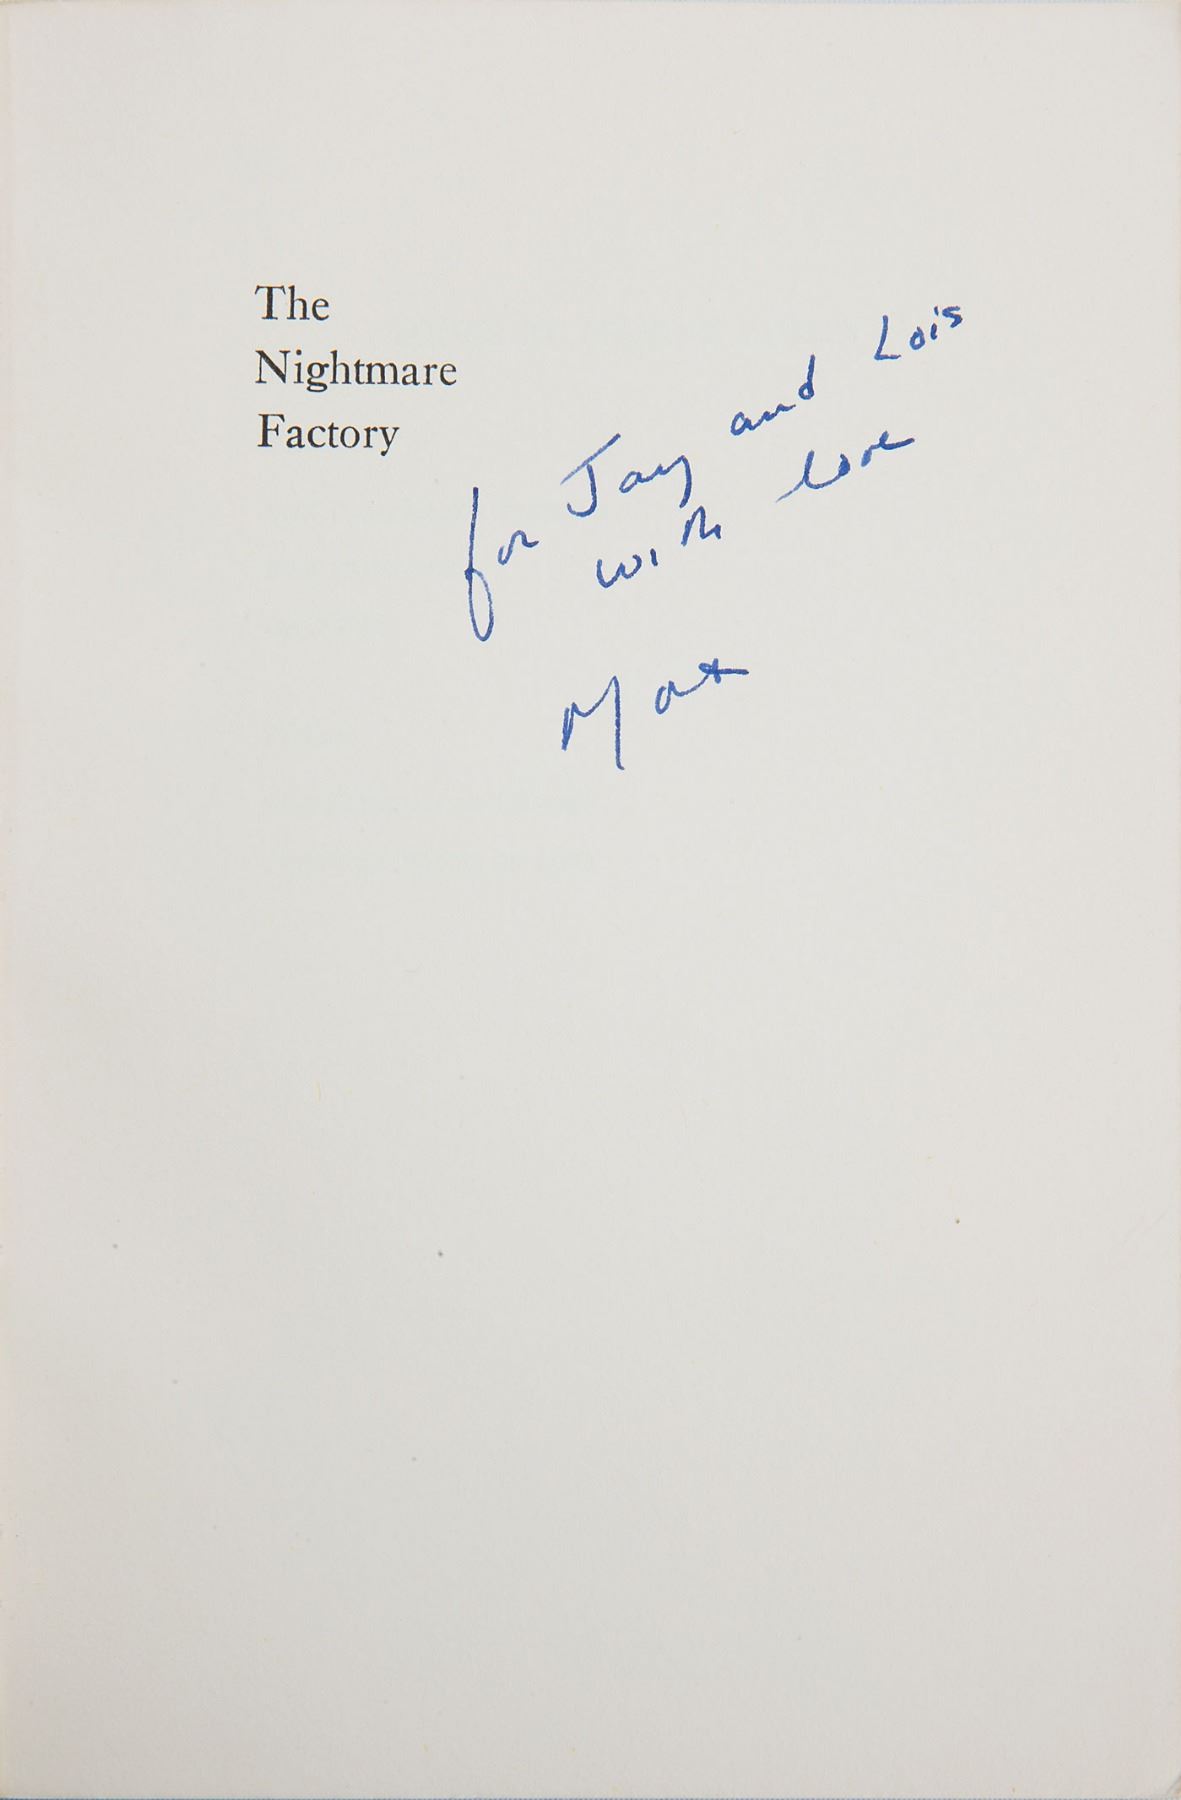 The
Nightmare
Factory
for Jay and Lois
with love
Max